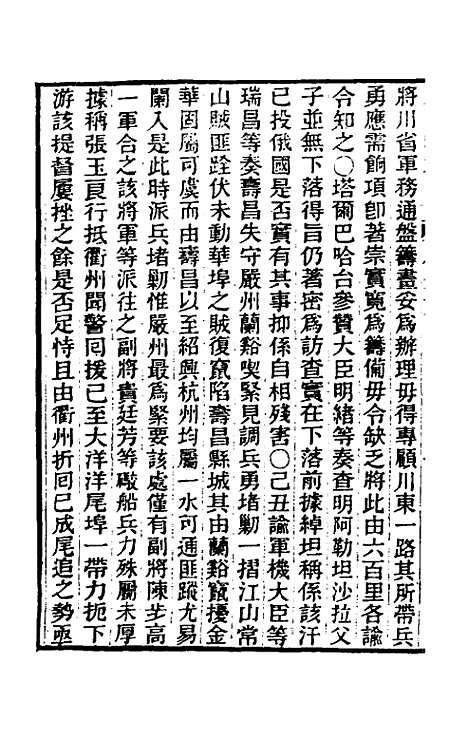 將川省軍務通盤籌畫妥爲辦理毋得專顧川東一路其所帶兵
勇應需餉項卽著崇實寬爲籌備毋令缺乏將此由六百里各諭
令知之〇塔爾巴哈台參贊大臣明緒等奏查明阿勒坦沙拉父
子並無下落得旨仍著密爲訪查實在下落前據綽坦稱係該汗
已投俄國是否實有其事抑係自相殘害〇己丑諭軍機大臣等
瑞昌等奏壽昌失守嚴州蘭谿喫緊見調兵勇堵勦一摺江山常
山賊匪跧伏未動華埠之賊復竄陷壽昌縣城其由蘭谿竄擾金
華固屬可虞而由壽昌以至紹興杭州均屬一水可通匪蹤尤易
闌入是此時派兵堵勦惟嚴州最爲緊要該處僅有副將陳步高
一軍合之該將軍等派往之副將貴廷芳等礮船兵力殊屬未厚
據稱張玉良行抵衢州聞警囘援已至大洋洋尾埠一帶力扼下
游該提督屢挫之餘是否足恃且由衢州折囘已成尾追之勢亟